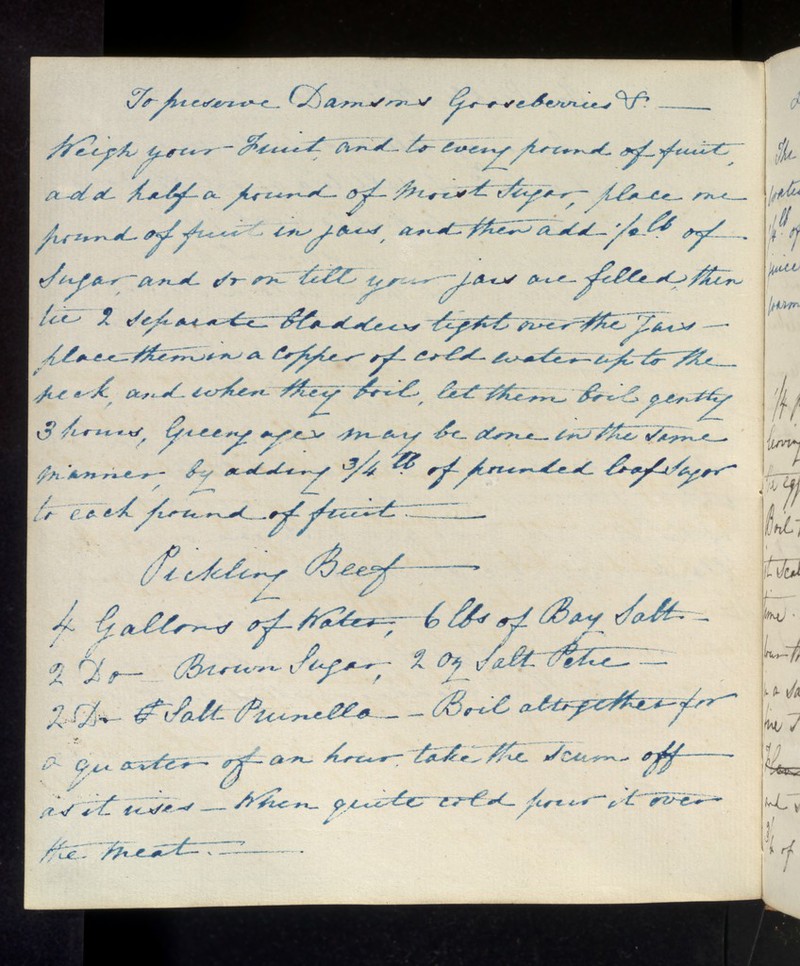 To preserve Damsons Gooseberries &c. —
Weigh your Fruit, and to every pound of fruit,
add half a pound of Moist Sugar, place one
pound of fruit in jars, and then add 1/2 lb of
Sugar and so on till your jars are filled, then
tie 2 separate bladders tight over the Jars —
place them in a Copper of cold water up to the
neck, and when they boil, let them boil gently
3 hours, Greengages may be done in the same
manner, by adding 3/4 lb of pounded loaf Sugar
to each pound of fruit —
Pickling Beef —
4 Gallons of Water, 6 lbs of Bay Salt —
2 Do — Brown Sugar, 2 oz Salt Petre —
2 Do Salt Prunella — Boil altogether for
a quarter of an hour, take the scum off —
as it rises — When quite cold pour it over
the meat. —
The
juice
warm
Boil
of